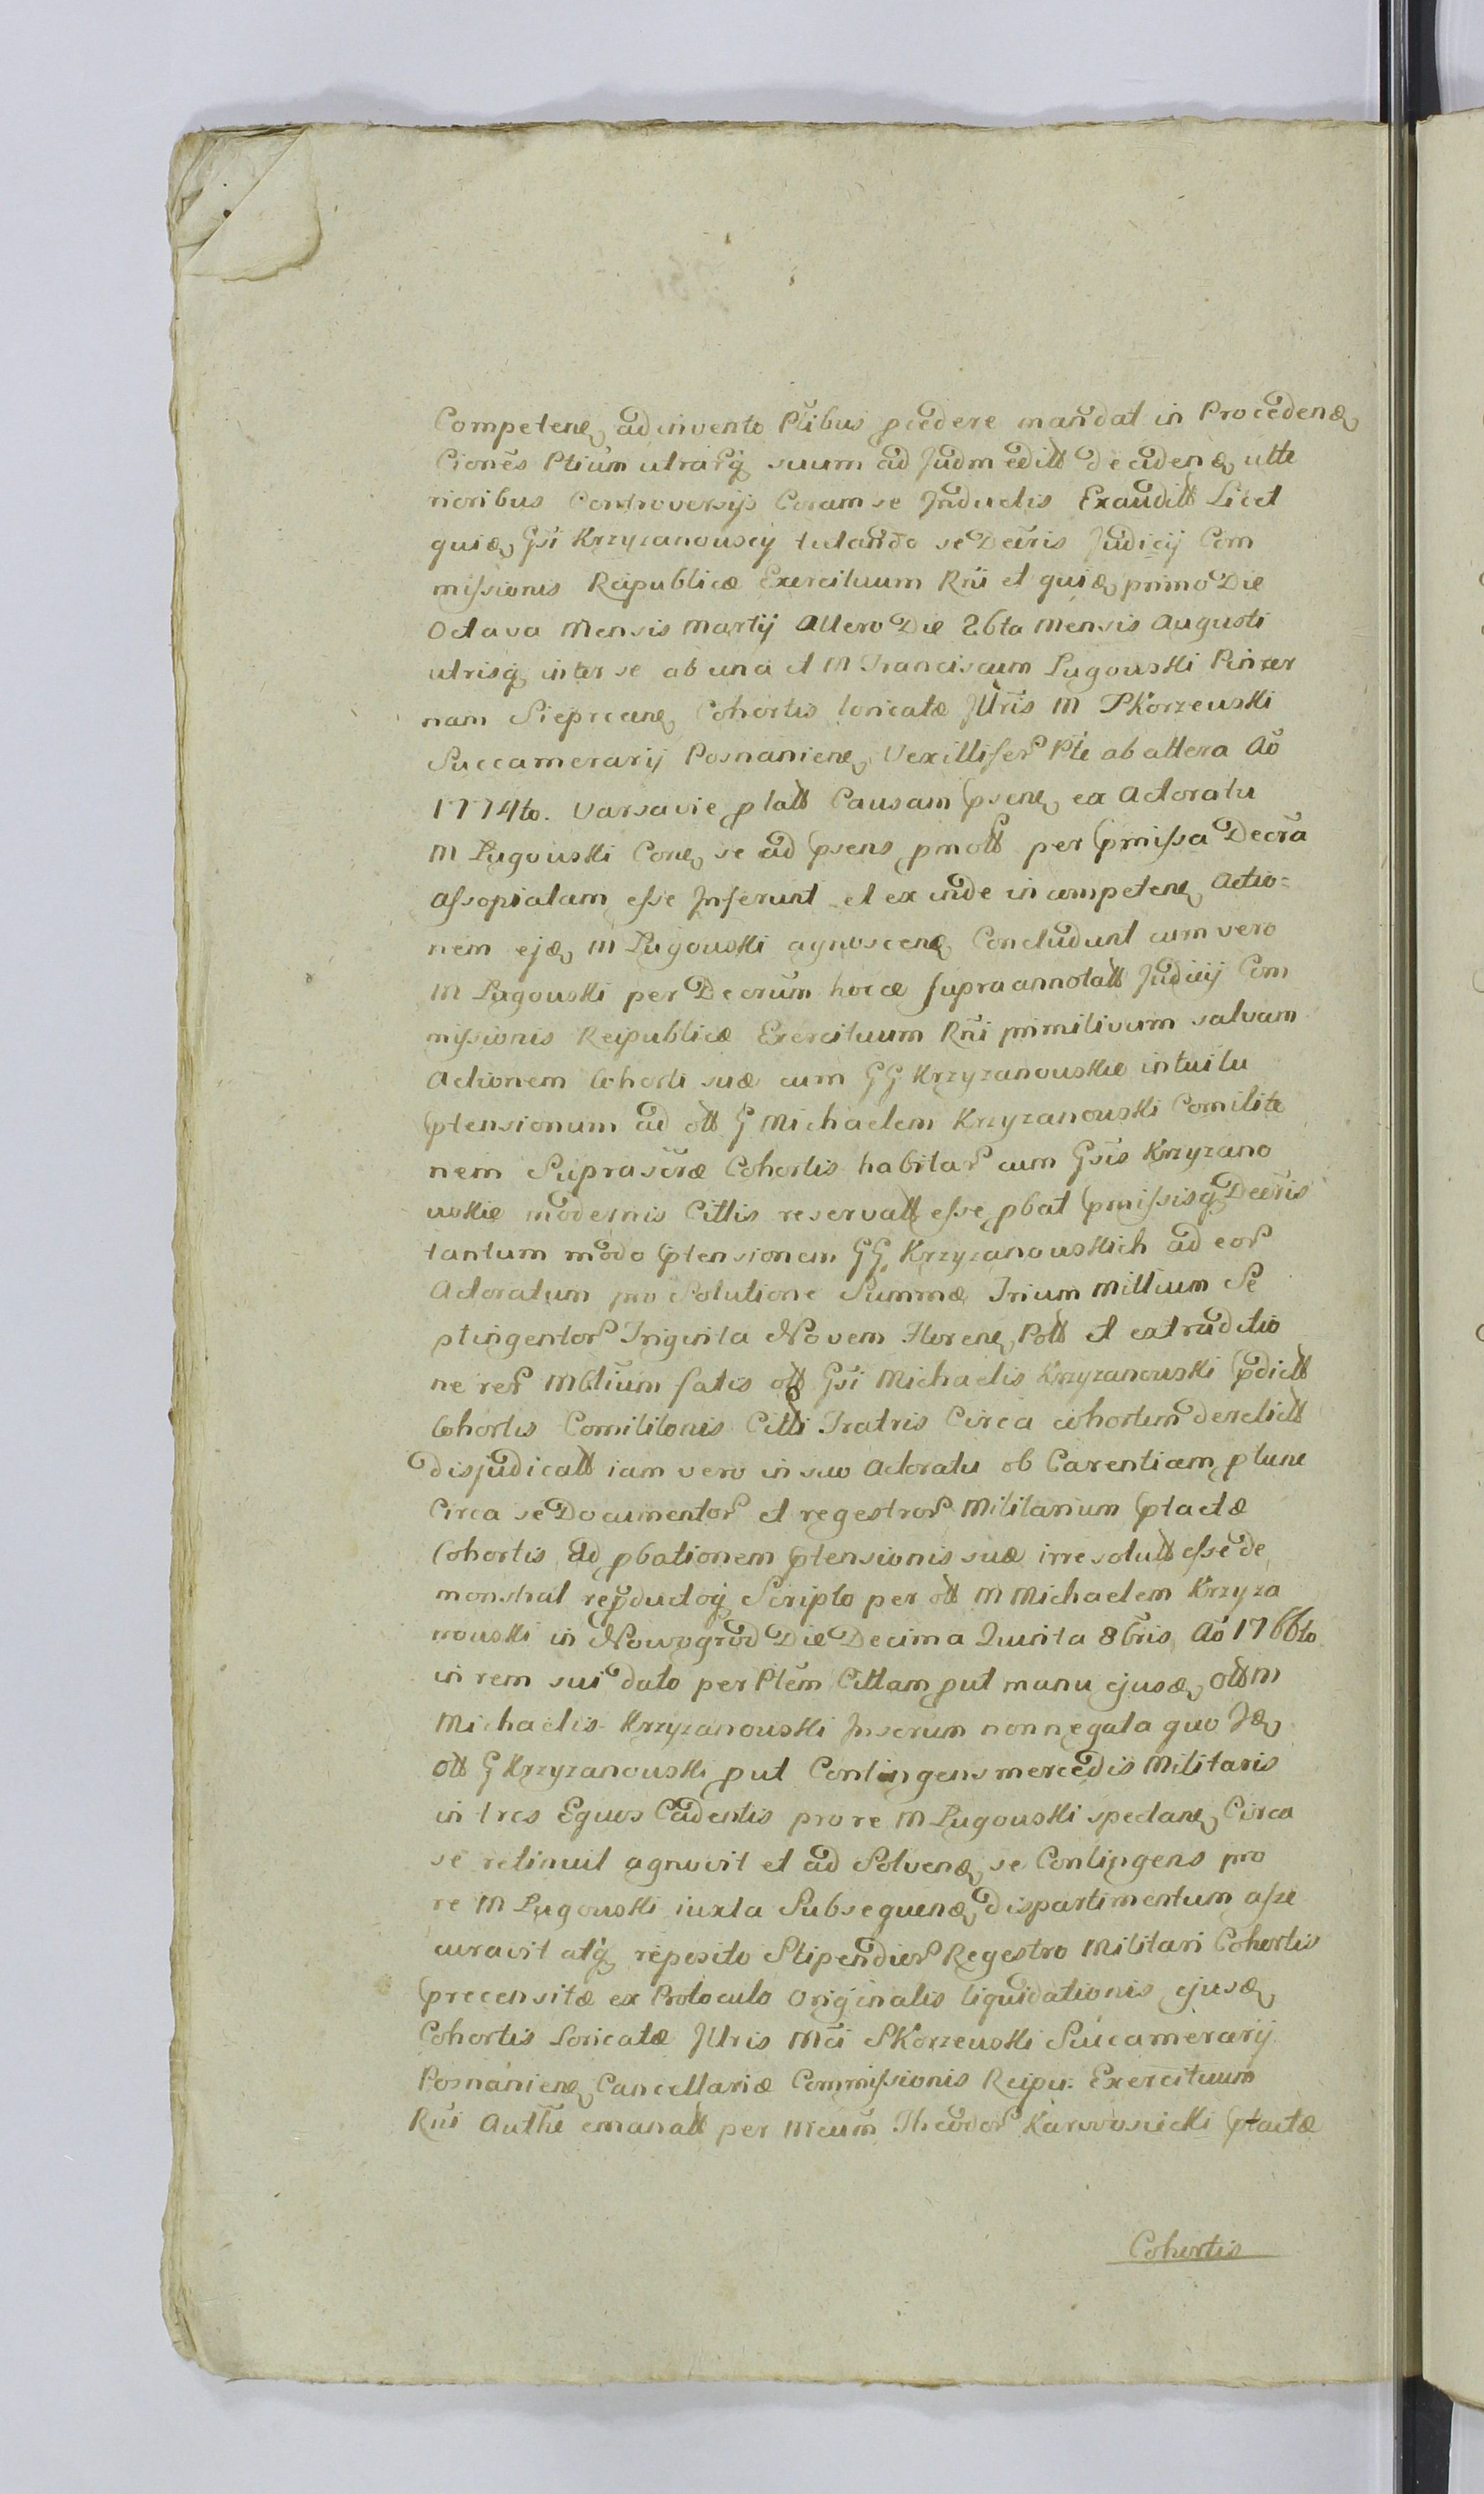 Competene, adinvento Ptibus pcedere mandat in Procedenæ,
Ciones Ptium utrarq suum ad Judm editt decidenæ, ulte
rioribus Controversijs Coram se Inductis Exauditt Licet
quiæ, Gsi Krzyzanouscij tutando se Decris Judicij Com
missionis Reipublicæ Exercituum Rni et quiæ, primo Die
Octava Mensis Martij Altero Die 26ta Mensis Augusti
utrisq, inter se ab una et M Franciscum Lugouski Pincer
nam Sieprcene, Cohortis loricatæ Jltris M Skorzeuski
Succamerarij Posnaniene, Vexillifer Pte ab altera Ao
1774to. Varsavie platt Causam psene, ex Actoratu
M Lugouski Cone, se ad psens pmott per pmissa Decra
assopiatam esse Inferunt et ex inde incompetene, Actio=
nem ejæ, M Lugouski agnoscenæ, Concludunt cum vero
M Lugouski per Decrum hocce supraannotatt Judicij Com
missionis Reipublicæ Exercituum Rni primitivum salvam
Actionem Cohorti suæ cum GG Krzyzanouskie intuitu
ptensionum ad ott G Michaelem Krzyzanouski Comilito
nem Suprascræ Cohortis habitar cum Gsis Krzyzano
uskie modernis Cittis reservatt esse pbat pmissisq Decris
tantum modo ptensionem GG Krzyzanouskich ad eor
Actoratum pro Solutione Summæ Trium Millium Se
ptingentor Triginta Novem Florene, Poll et extraditio
ne rer Mbtium fatis ott Gsi Michaelis Krzyzanouski pdictt
Cohortis Comilitonis Citti Fratris Circa cohortem derelictt
disjudicatt iam vero in suo Actoratu ob Carentiam ptunc
Circa se Documentor et regestror Militarium ptactæ
Cohortis ad pbationem ptensionis suæ irresolutt esse de
monstrat repductoq Scripto per ott M Michaelem Krzyza
nouski in Nowogrod Die Decima Quinta 8bris Ao 1766to
in rem sui dato per Ptem Cittam put manu ejusæ, ott M
Michaelis Krzyzanouski Inscrum non negata quo Jæ,
ott G Krzyzanouski put Contingens mercedis Militaris
in tres Equos Cadentis pro re M Lugouski spectane, Circa
se retinuit agnovit et ad Solvenæ, se Contingens pro
re M Lugouski iuxta Subsequenæ, dispartimentum asse
curavit atq reposito Stipendior Regestro Militari Cohortis
precensitæ ex Protoculo Originalis liquidationis ejusæ,
Cohortis Loricatæ Jltris Mci Skorzeuski Succamerarij
Posnaniene, Cancellariæ Commissionis Reipu: Exercituum
Rni Authe emanatt per Mcum Theodor Karwosiecki ptactæ
Cohortis